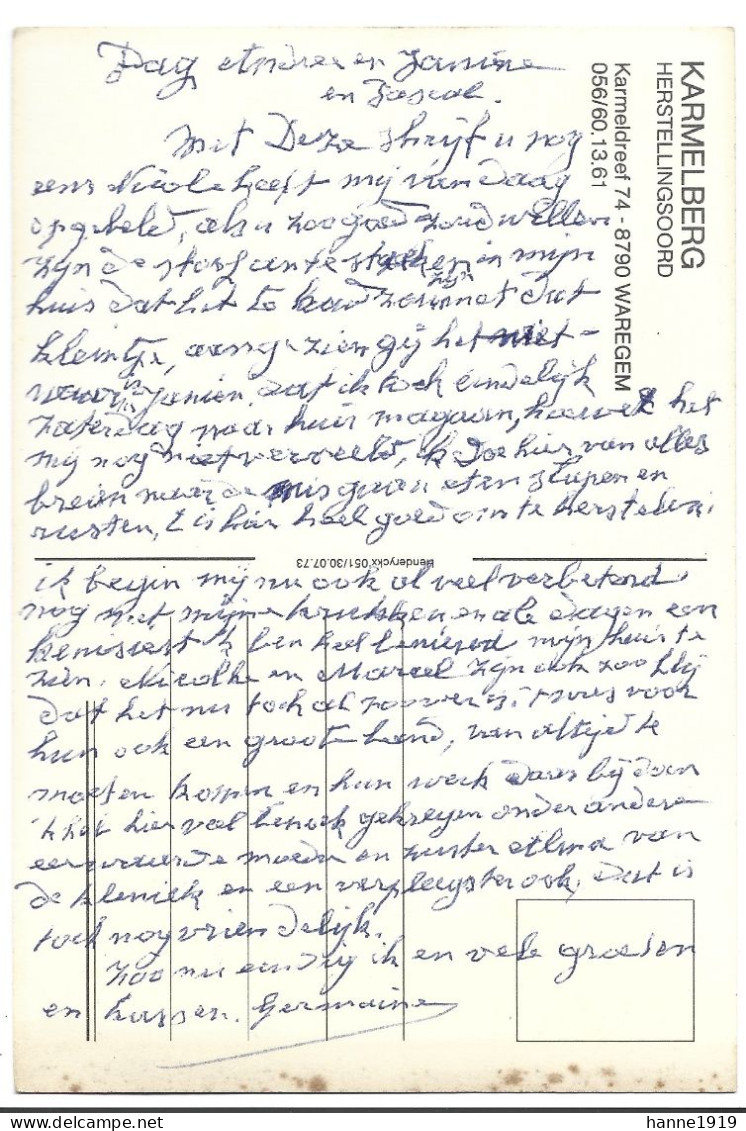 KARMELBERG
HERSTELLINGSOORD
Karmeldreef 74 - 8790 WAREGEM
056/60.13.61
Dag Andree en Janine
en Pascal.
Met Deze schrijf u nog
eens Nicole heeft mij van daag
opgebeld, als u zoo goed zoud willen
zijn de stofsante steken in mijn
huis dat het te koud zou zijn met dat
kleintje, aangezien gij het niet
voor Janien, dat ik toch eindelijk
zaterdag naar huis mag gaan, hoewel het
mij nog niet verveeld, ik doe hier van alles
breien naar de mis gaan eten slapen en
rusten, t is hier heel goed om te herstellen
Henderyckx 051/30.07.73
ik begin mij nu ook al veel verbeterd
nog met mijne krukken en ale dagen een
kenissest k ben heel benieuwd mijn huis te
zien. Nicolke en Marcel zijn ook zoo blij
dat het nu toch al zoover is t was voor
hun ook een groote band, van altijd te
moeten komen en hun werk daar bij doen
k heb hier veel bezoek gekregen onder andere
eerwaarde moeder en zuster Alma van
de kleniek en een verpleegster ook, dat is
toch nog vriendelijk.
Zoo nu eindig ik en vele groeten
en kussen. Germaine
hanne1919